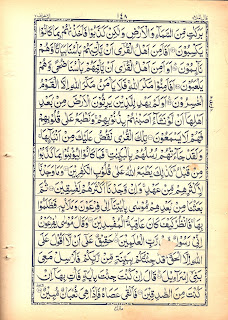 ١٤٨
بَرَكٰتٍ مِّنَ السَّمَآءِ وَالْاَرْضِ وَلٰكِنْ كَذَّبُوْا فَاَخَذْنٰهُمْ بِمَا كَانُوْا
يَكْسِبُوْنَ اَفَاَمِنَ اَهْلُ الْقُرٰٓى اَنْ يَّاْتِيَهُمْ بَاْسُنَا بَيَاتًا وَّهُمْ
نَآئِمُوْنَ اَوَاَمِنَ اَهْلُ الْقُرٰٓى اَنْ يَّاْتِيَهُمْ بَاْسُنَا ضُحًى وَّهُمْ
يَلْعَبُوْنَ اَفَاَمِنُوْا مَكْرَ اللّٰهِ فَلَا يَاْمَنُ مَكْرَ اللّٰهِ اِلَّا الْقَوْمُ
الْخٰسِرُوْنَ اَوَلَمْ يَهْدِ لِلَّذِيْنَ يَرِثُوْنَ الْاَرْضَ مِنْۢ بَعْدِ
اَهْلِهَآ اَنْ لَّوْ نَشَآءُ اَصَبْنٰهُمْ بِذُنُوْبِهِمْ وَنَطْبَعُ عَلٰى قُلُوْبِهِمْ
فَهُمْ لَا يَسْمَعُوْنَ تِلْكَ الْقُرٰى نَقُصُّ عَلَيْكَ مِنْ اَنْۢبَآئِهَا
وَلَقَدْ جَآءَتْهُمْ رُسُلُهُمْ بِالْبَيِّنٰتِ فَمَا كَانُوْا لِيُؤْمِنُوْا بِمَا كَذَّبُوْا
مِنْ قَبْلُ كَذٰلِكَ يَطْبَعُ اللّٰهُ عَلٰى قُلُوْبِ الْكٰفِرِيْنَ وَمَا وَجَدْنَا
لِاَكْثَرِهِمْ مِّنْ عَهْدٍ وَاِنْ وَّجَدْنَآ اَكْثَرَهُمْ لَفٰسِقِيْنَ ثُمَّ
بَعَثْنَا مِنْۢ بَعْدِهِمْ مُّوْسٰى بِاٰيٰتِنَآ اِلٰى فِرْعَوْنَ وَمَلَا۟ئِهٖ فَظَلَمُوْا
بِهَا فَانْظُرْ كَيْفَ كَانَ عَاقِبَةُ الْمُفْسِدِيْنَ وَقَالَ مُوْسٰى يٰفِرْعَوْنُ
اِنِّيْ رَسُوْلٌ رَّبِّ الْعٰلَمِيْنَ حَقِيْقٌ عَلٰٓى اَنْ لَّآ اَقُوْلَ عَلَى
اللّٰهِ اِلَّا الْحَقَّ قَدْ جِئْتُكُمْ بِبَيِّنَةٍ مِّنْ رَّبِّكُمْ فَاَرْسِلْ مَعِيَ
بَنِيْٓ اِسْرَآءِيْلَ قَالَ اِنْ كُنْتَ جِئْتَ بِاٰيَةٍ فَاْتِ بِهَآ اِنْ
كُنْتَ مِنَ الصّٰدِقِيْنَ فَاَلْقٰى عَصَاهُ فَاِذَا هِيَ ثُعْبَانٌ مُّبِيْنٌ